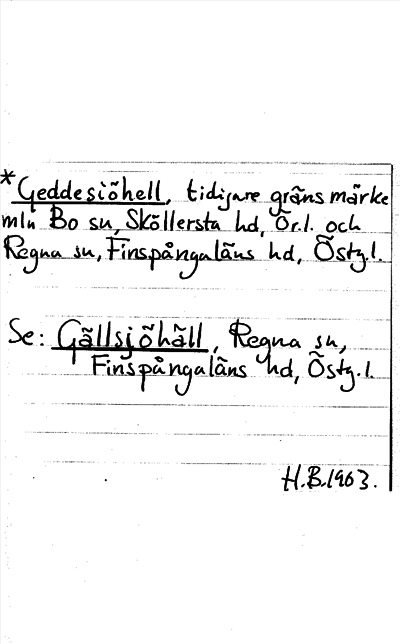 *Geddesiöhell, tidigare gränsmärke
mln Bo sn, Sköllersta hd, Ör.l. och
Regna sn, Finspångaläns hd, Östg.l.
Se: Gällsjöhäll, Regna sn,
Finspångaläns hd, Östg.l.
H.B.1963.